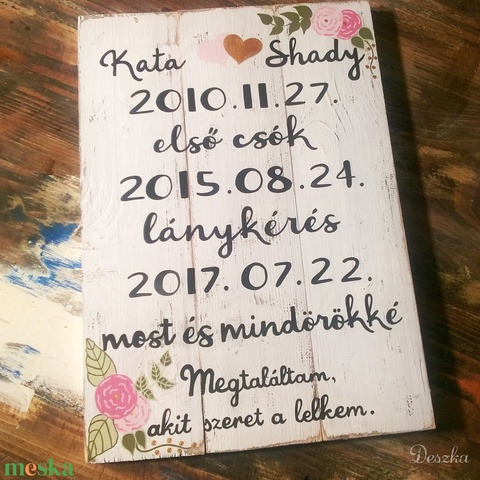 Kata Shady
2010.11.27.
első csók
2015.08.24.
lánykérés
2017.07.22.
most és mindörökké
Megtaláltam,
akit szeret a lelkem.
Deszka
meska